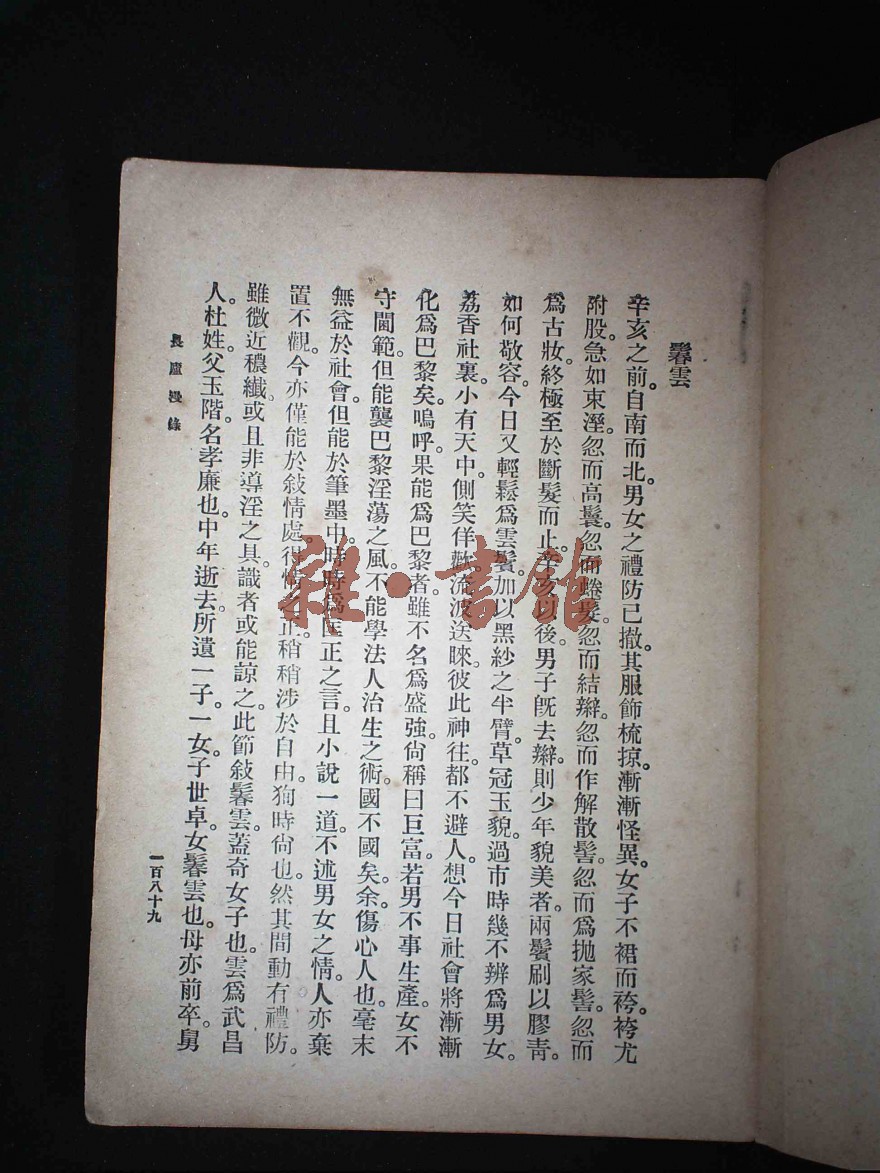 鬈雲
辛亥之前。自南而北。男女之禮防已撤。其服飾梳掠。漸漸怪異。女子不裙而袴。袴尤
附股。急如束溼。忽而高鬟。忽而蜷髮。忽而結辮。忽而作解散髻。忽而爲拋家髻。忽而
爲古妝。終極至於斷髮而止。辛亥以後。男子旣去辮。則少年貌美者。兩鬢刷以膠靑。
如何敬容。今日又輕鬆爲雲鬢。加以黑紗之半臂。草冠玉貌。過市時幾不辨爲男女。
荔香社裏。小有天中。側笑佯歡。流波送睞。彼此神往。都不避人。想今日社會將漸漸
化爲巴黎矣。嗚呼。果能爲巴黎者。雖不名爲盛強。尙稱曰巨富。若男不事生產。女不
守閫範。但能襲巴黎淫蕩之風。不能學法人治生之術。國不國矣。余傷心人也。毫末
無益於社會。但能於筆墨中。時時爲匡正之言。且小說一道。不述男女之情。人亦棄
置不觀。今亦僅能於敍情處。得情之正。稍稍涉於自由。狥時尙也。然其間動有禮防。
雖微近穠纖。或且非導淫之具。識者或能諒之。此節敍鬈雲。蓋奇女子也。雲爲武昌
人。杜姓。父玉階。名孝廉也。中年逝去。所遺一子。一女。子世卓。女鬈雲也。母亦前卒。舅
長廬漫錄
一百八十九
雜·書館